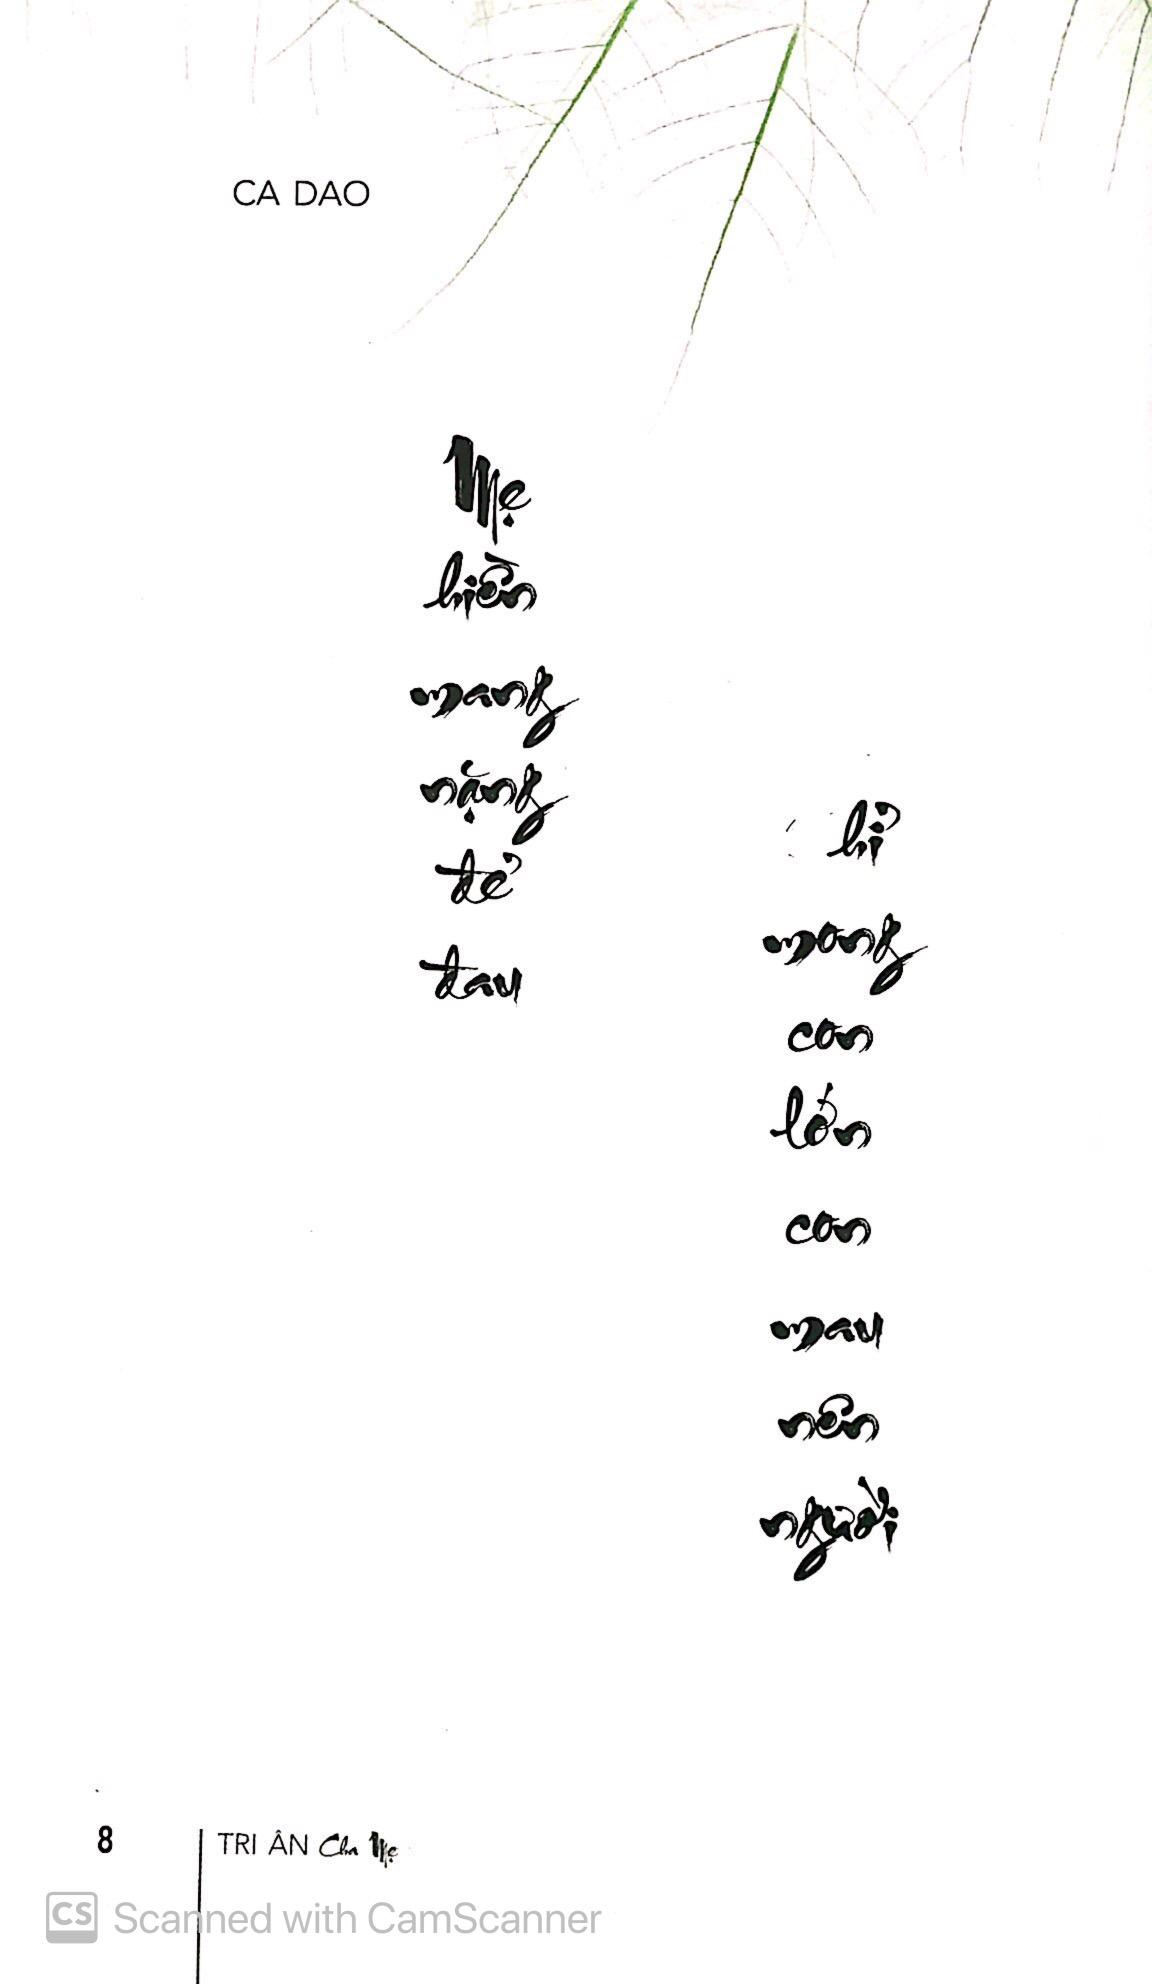 CA DAO
Mẹ
hiền
mang
nặng
đẻ
đau
hỉ
mong
con
lớn
con
mau
nên
người
8
TRI ÂN Cha Mẹ
CS Scanned with CamScanner